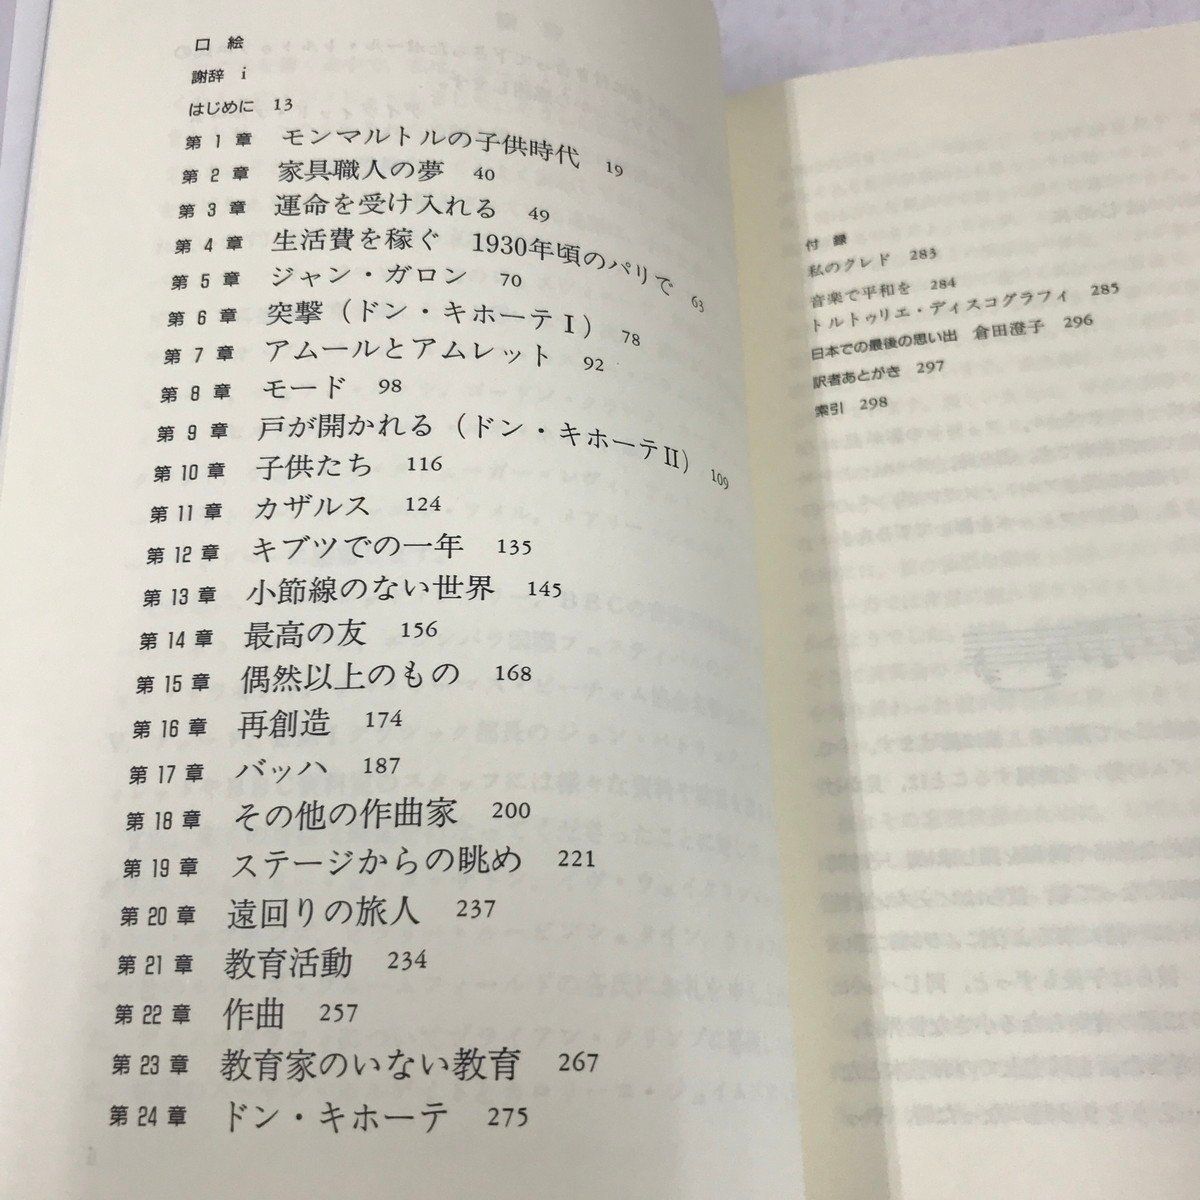 口絵
謝辞 i
はじめに 13
第1章 モンマルトルの子供時代 19
第2章 家具職人の夢 40
第3章 運命を受け入れる 49
第4章 生活費を稼ぐ 1930年頃のパリで 63
第5章 ジャン・ガロン 70
第6章 突撃（ドン・キホーテⅠ） 78
第7章 アムールとアムレット 92
第8章 モード 98
第9章 戸が開かれる（ドン・キホーテⅡ） 109
第10章 子供たち 116
第11章 カザルス 124
第12章 キブツでの一年 135
第13章 小節線のない世界 145
第14章 最高の友 156
第15章 偶然以上のもの 168
第16章 再創造 174
第17章 バッハ 187
第18章 その他の作曲家 200
第19章 ステージからの眺め 221
第20章 遠回りの旅人 237
第21章 教育活動 234
第22章 作曲 257
第23章 教育家のいない教育 267
第24章 ドン・キホーテ 275
付録
私のクレド 283
音楽で平和を 284
トルトゥリエ・ディスコグラフィ 285
日本での最後の思い出 倉田澄子 296
訳者あとがき 297
索引 298